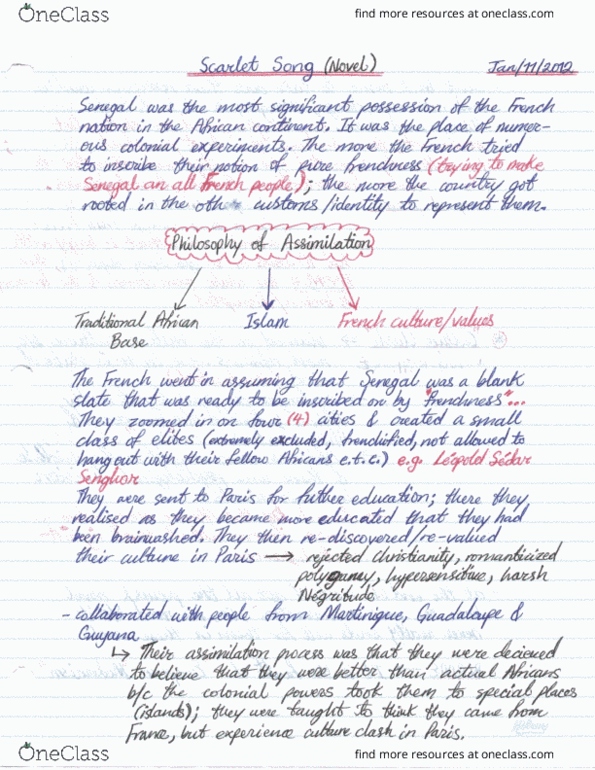 OneClass
find more resources at oneclass.com
Scarlet Song (Novel)
Jan/11/2012
Senegal was the most significant possession of the French
nation in the African continent. It was the place of numer-
ous colonial experiments. The more the French tried
to inscribe their notion of pure frenchness (trying to make
Senegal an all French people); the more the country got
rooted in the oth customs/identity to represent them.
Philosophy of Assimilation
Traditional African Islam French culture/values
Base
The French went in assuming that Senegal was a blank
slate that was ready to be inscribed on by "frenchness"...
They zoomed in on four (4) cities & created a small
class of elites (extremely excluded, frenchified, not allowed to
hang out with their fellow Africans e.t.c.) e.g. Léopold Sédar
Senghor
They were sent to Paris for futher education; there they
realised as they became more educated that they had
been brainwashed. They then re-discovered/re-valued
their culture in Paris → rejected christianity, romanticized
polygamy, hypersensitive, harsh
Négritude
- collaborated with people from Martinique, Guadaloupe &
Guyana
↳ Their assimilation process was that they were decieved
to believe that they were better than actual Africans
b/c the colonial powers took them to special places
(islands); they were taught to think they came from
France, but experience culture clash in Paris.
OneClass
find more resources at oneclass.com